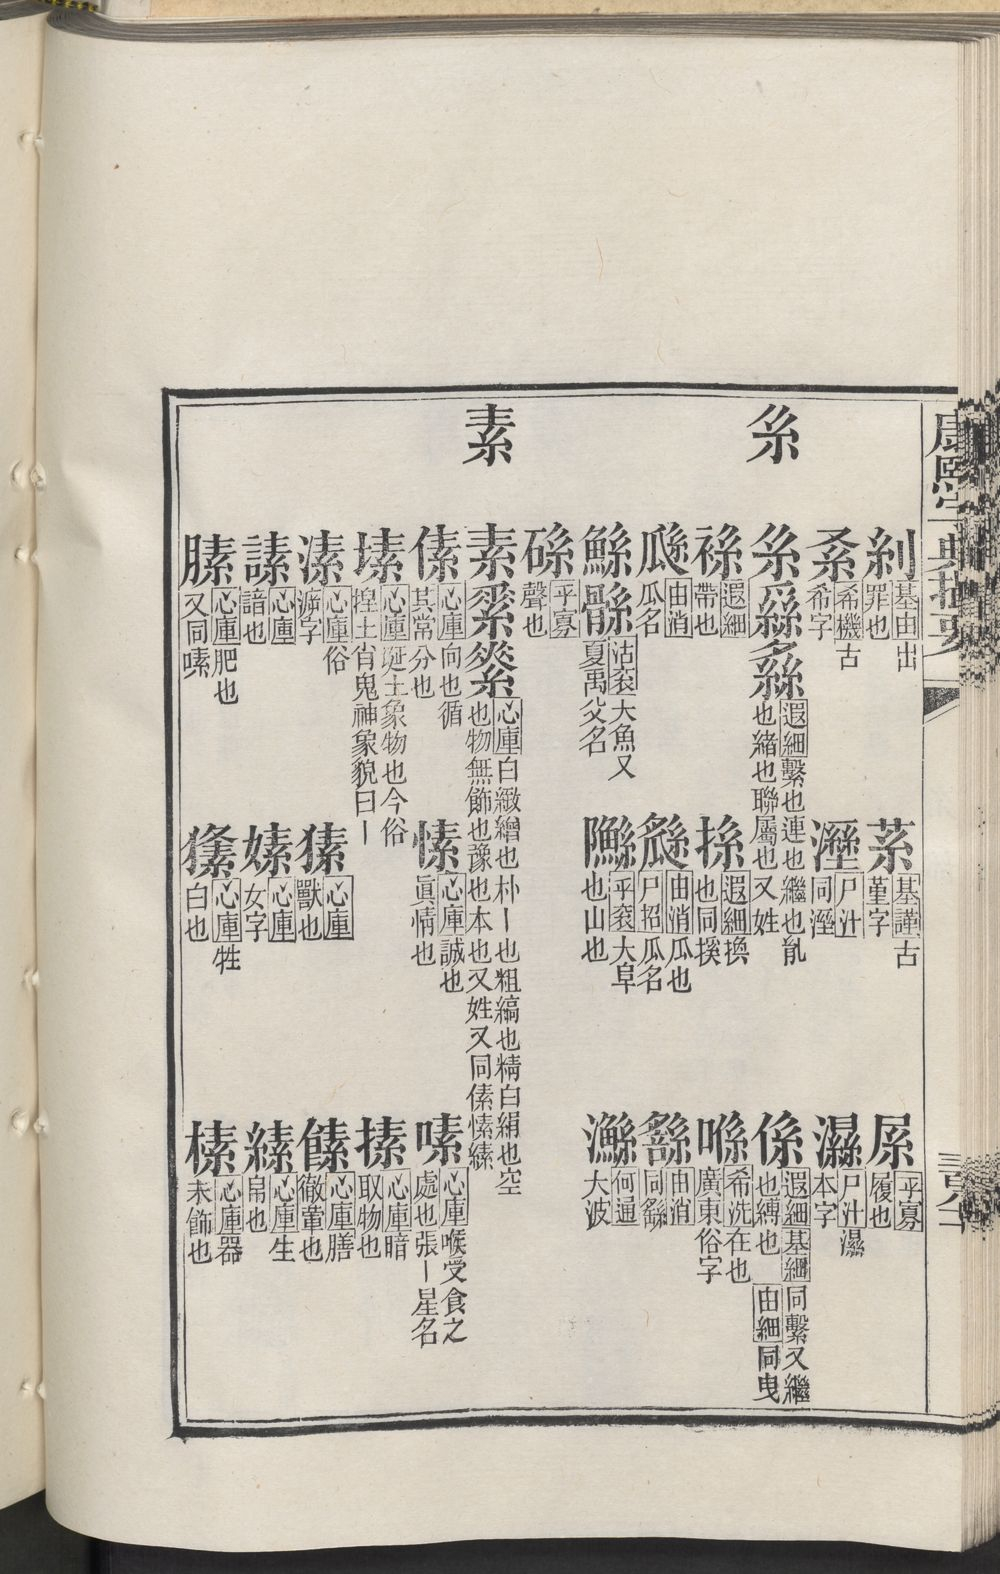 康熙字典撮要
系
素
𦀗 基由出罪也
䋣 基謹古菫字
㞙 平寡履也
㕛 希機古希字
溼 尸汁同溼
濕 尸汁濕本字
系 遐細繫也連也繼也胤也緒也聯屬也又姓
係 遐細基細同繫又繼也縛也 由細同曳
䘠 遐細帶也
搎 遐細換也同㨙
喺 希洗在也廣東俗字
由消瓜名
由消瓜也尸招瓜名
繇 由消同繇
鯀 沽袞大魚又夏禹父名
平袞大阜也山也
何通大波
平寡聲也
素 心庫白緻繒也朴丨也粗縞也精白絹也空也物無飾也豫也本也又姓又同傃愫縤
傃 心庫向也循其常分也
愫 心庫誠也眞情也
嗉 心庫喉受食之處也張丨星名
塐 心庫埏土象物也今俗揑土肖鬼神象貌曰丨
㨞 心庫暗取物也
溸 心庫俗泝字
㺐 心庫獸也
䭘 心庫膳徹葷也
愬 心庫諳也
嫊 心庫女字
縤 心庫生帛也
膆 心庫肥也又同嗉
心庫牲白也
榡 心庫器未飾也